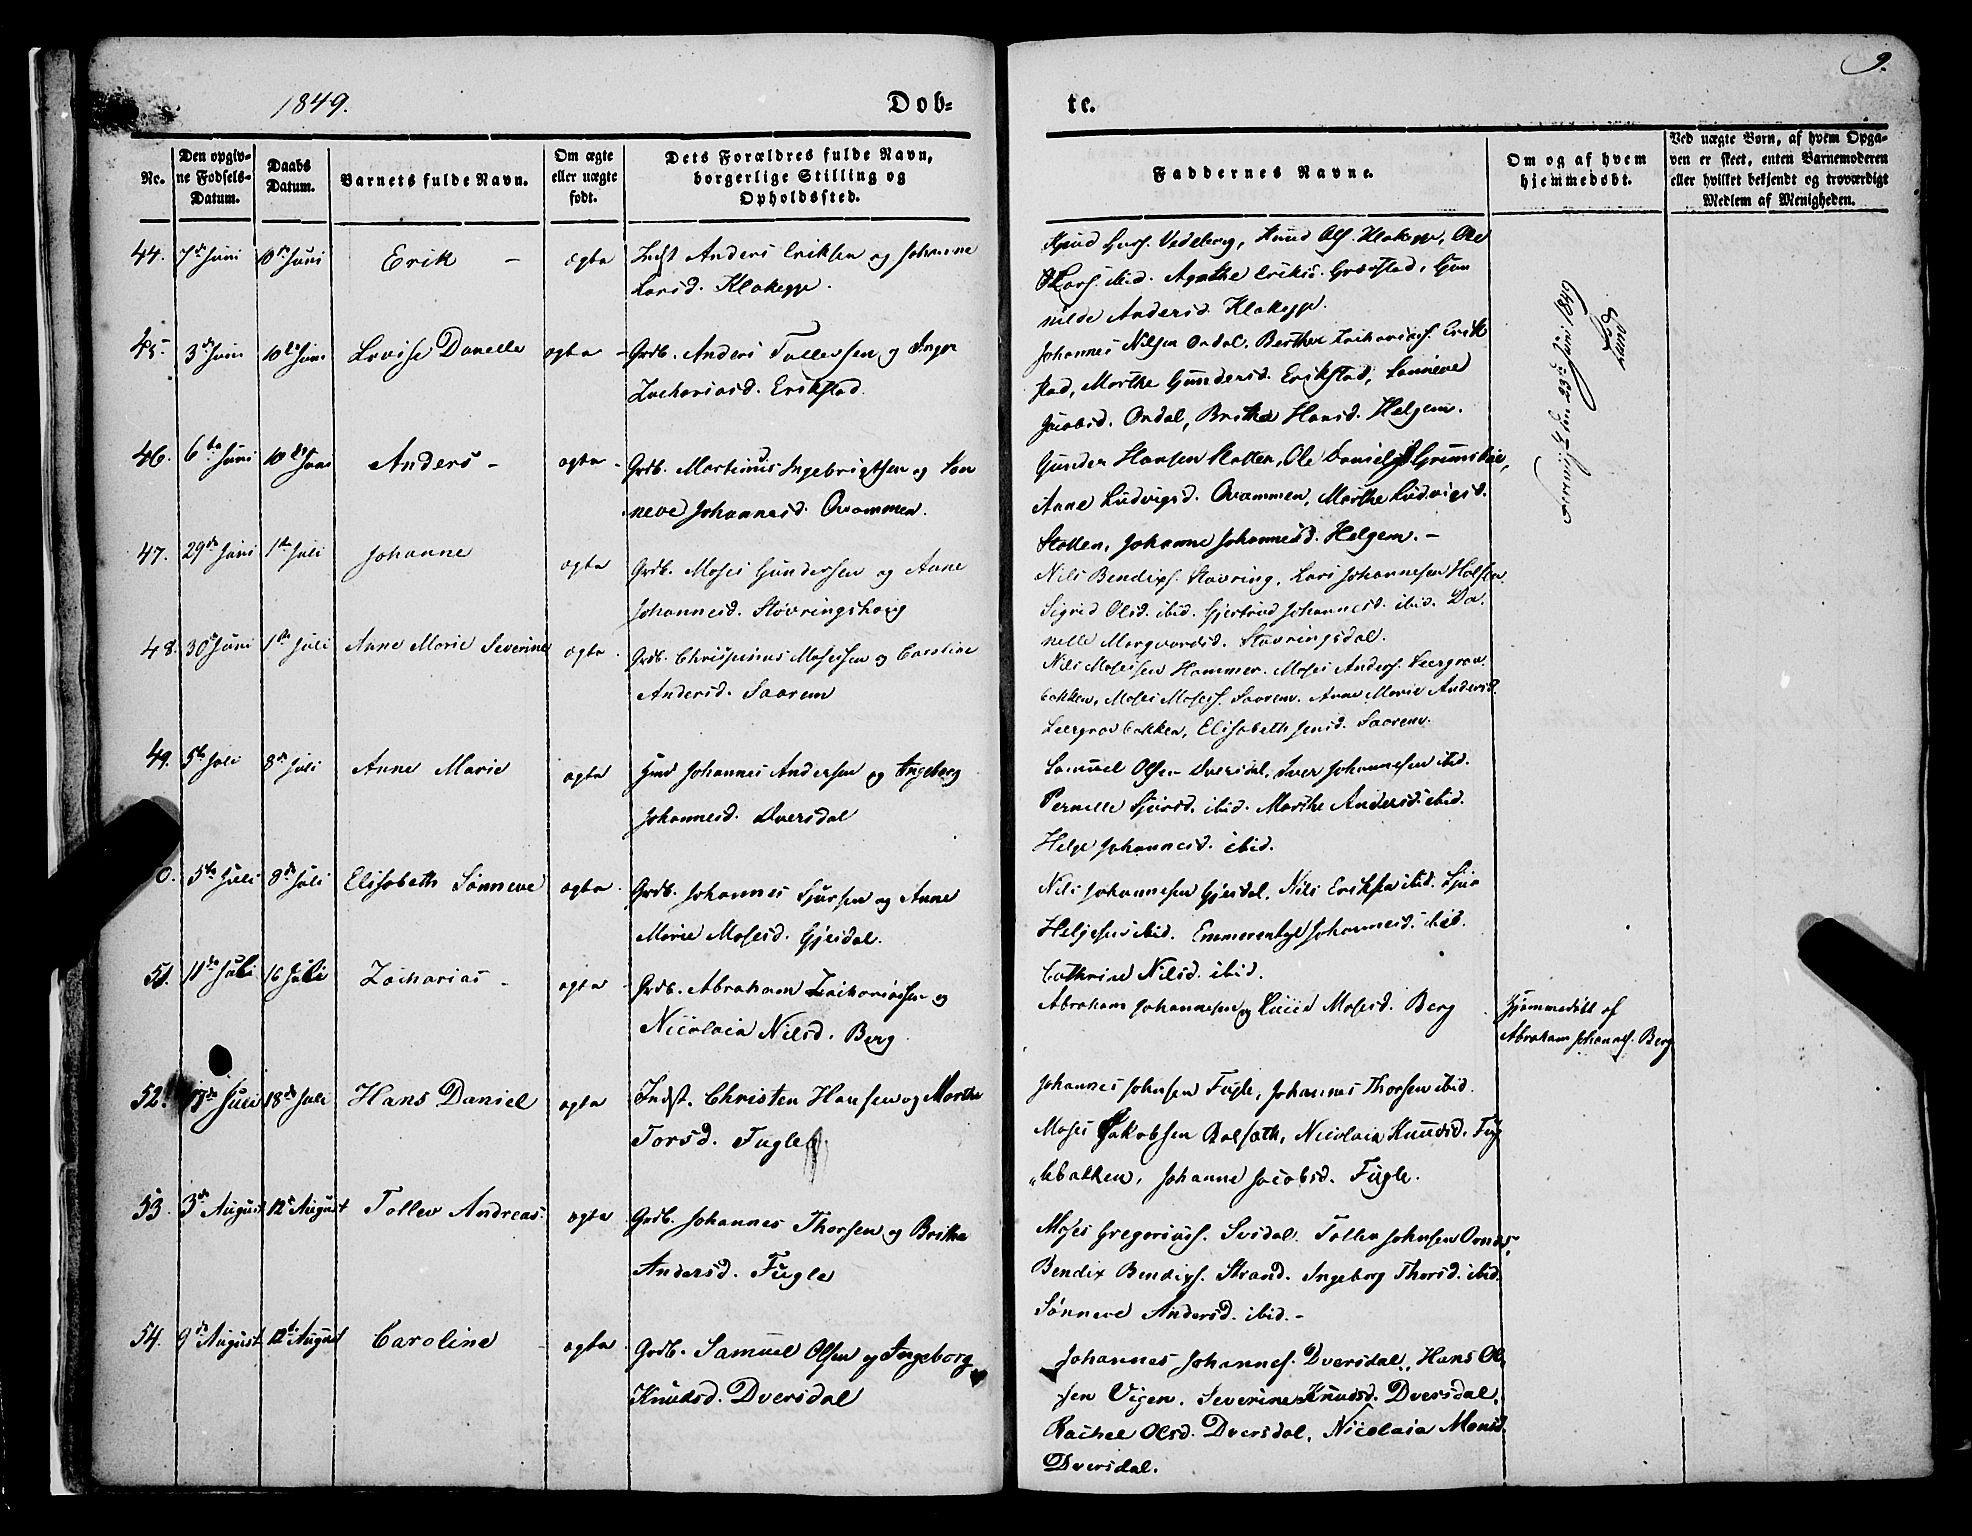 9.
1849.
Døb=
te.
Nr.
Den opgiv-
ne Fødsels-
Datum.
Daabs
Datum.
Barnets fulde Navn.
Om ægte
eller uægte
født.
Dets Forældres fulde Navn,
borgerlige Stilling og
Opholdssted.
Faddernes Navne.
Om og af hvem
hjemmedøbt.
Ved uægte Børn, af hvem Opga-
ven er skeet, enten Barnemoderen
eller hvilket bekjendt og troværdigt
Medlem af Menigheden.
44. 7de Juni 10de Juni Erik - ægte Indst Anders Eriksen og Johanne
Larsd. Klakegge.
Knud Olss. Klakegge, Ole
Lars. ibid. Agathe Eriksd.
nilde Andersd. Klakegge.
45. 3de Juni 10de Juni Lovise Danelle ægte - Grdb. Anders Tollevsen og Inger
Zachariasd. Erikstad.
Johannes Nilsen Ordal, Berthe Zachariasd. Erik
stad, Marthe Gundersd. Erikstad, Sønneve
Jacobsd. Ordal, Brithe Hansd. Helgem.
46. 6te Juni 10de Juni Anders - ægte - Grdb. Martinus Ingebrigtsen og Søn
neve Johannesd. Qvammen.
Gunder Hansen Slatten, Ole Daniels.
Anne Ludvigsd. Qvammen, Marthe Ludvigsd.
Slatten, Johanne Johannesd. Helgem. -
47. 29de Juni 1ste Juli Johanne ægte Grdb. Moses Gundersen og Anne
Johannesd. Støvringshoug
Nils Bendixs. Støvring, Lars Johannesen
Sigrid Olsd. ibid. Gjertrud Johannesd. ibid. Da
nelle Margvardsd. Støvringsdal.
48. 30te Juni 1ste Juli Anne Marie Severine ægte Grdb. Chrispinus Mosessen og Caroline
Andersd. Saarem
Nils Mosessen Hammer. Moses Anders. Leergrov
bakken, Moses Moses. Saarem. Anne Marie Andersd.
Leergrovbakken, Elisabeth Jensd. Saarem.
49. 5te Juli 8de Juli Anne Marie ægte Hmd Johannes Andersen og Ingeborg
Johannesd. Dversdal
Samuel Olsen Dversdal, Iver Johannesen ibid.
Pernille Sjursd. ibid. Marthe Andersd. ibid.
Helge Johannesd. ibid.
0. 5te Juli 8de Juli Elisabeth Sønneve ægte Grdb. Johannes Sjursen og Anne
Marie Mosesd. Gjesdal.
Nils Johannesen Gjesdal, Nils Eriksen ibid. Sjur
Helgesen ibid. Emmerentze Johannesd. ibid.
Cathrine Nilsd. ibid.
51. 11te Juli 16 Juli Zacharias - ægte Grdb. Abraham Zachariassen og
Nicolaia Nilsd. Berg
Abraham Johannesen og Lucie Mosesd. Berg
Hjemmedøbt af
Abraham Johannes. Berg
52. 13de Juli 18de Juli Hans Daniel ægte Indst. Christen Hansen og Marthe
Torsd. Fugle
Johannes Johnsen Fugle, Johannes Thorsen ibid.
Moses Jakobsen Bolsæth, Nicolaia Knudsd. Fug
lebakken, Johanne Jacobsd. Fugle.
53. 3de August 12te August Tollev Andreas ægte Grdb. Johannes Thorsen og Brithe
Andersd. Fugle
Moses Gregorius. Svidal. Tollev Johnsen
Bendix Bendixs. Strand. Ingeborg Thorsd. ibid.
Sønneve Andersd. ibid. -
54. 9de August 12te August Caroline - ægte Grdb. Samuel Olsen og Ingeborg
Knudsd. Dversdal
Johannes Johannes. Dversdal, Hans Ol
sen Vigen. Severine Knudsd. Dversdal,
Rachel Olsd. Dversdal, Nicolaia Monsd.
Dversdal.
den 23de Juni 1849
Lund